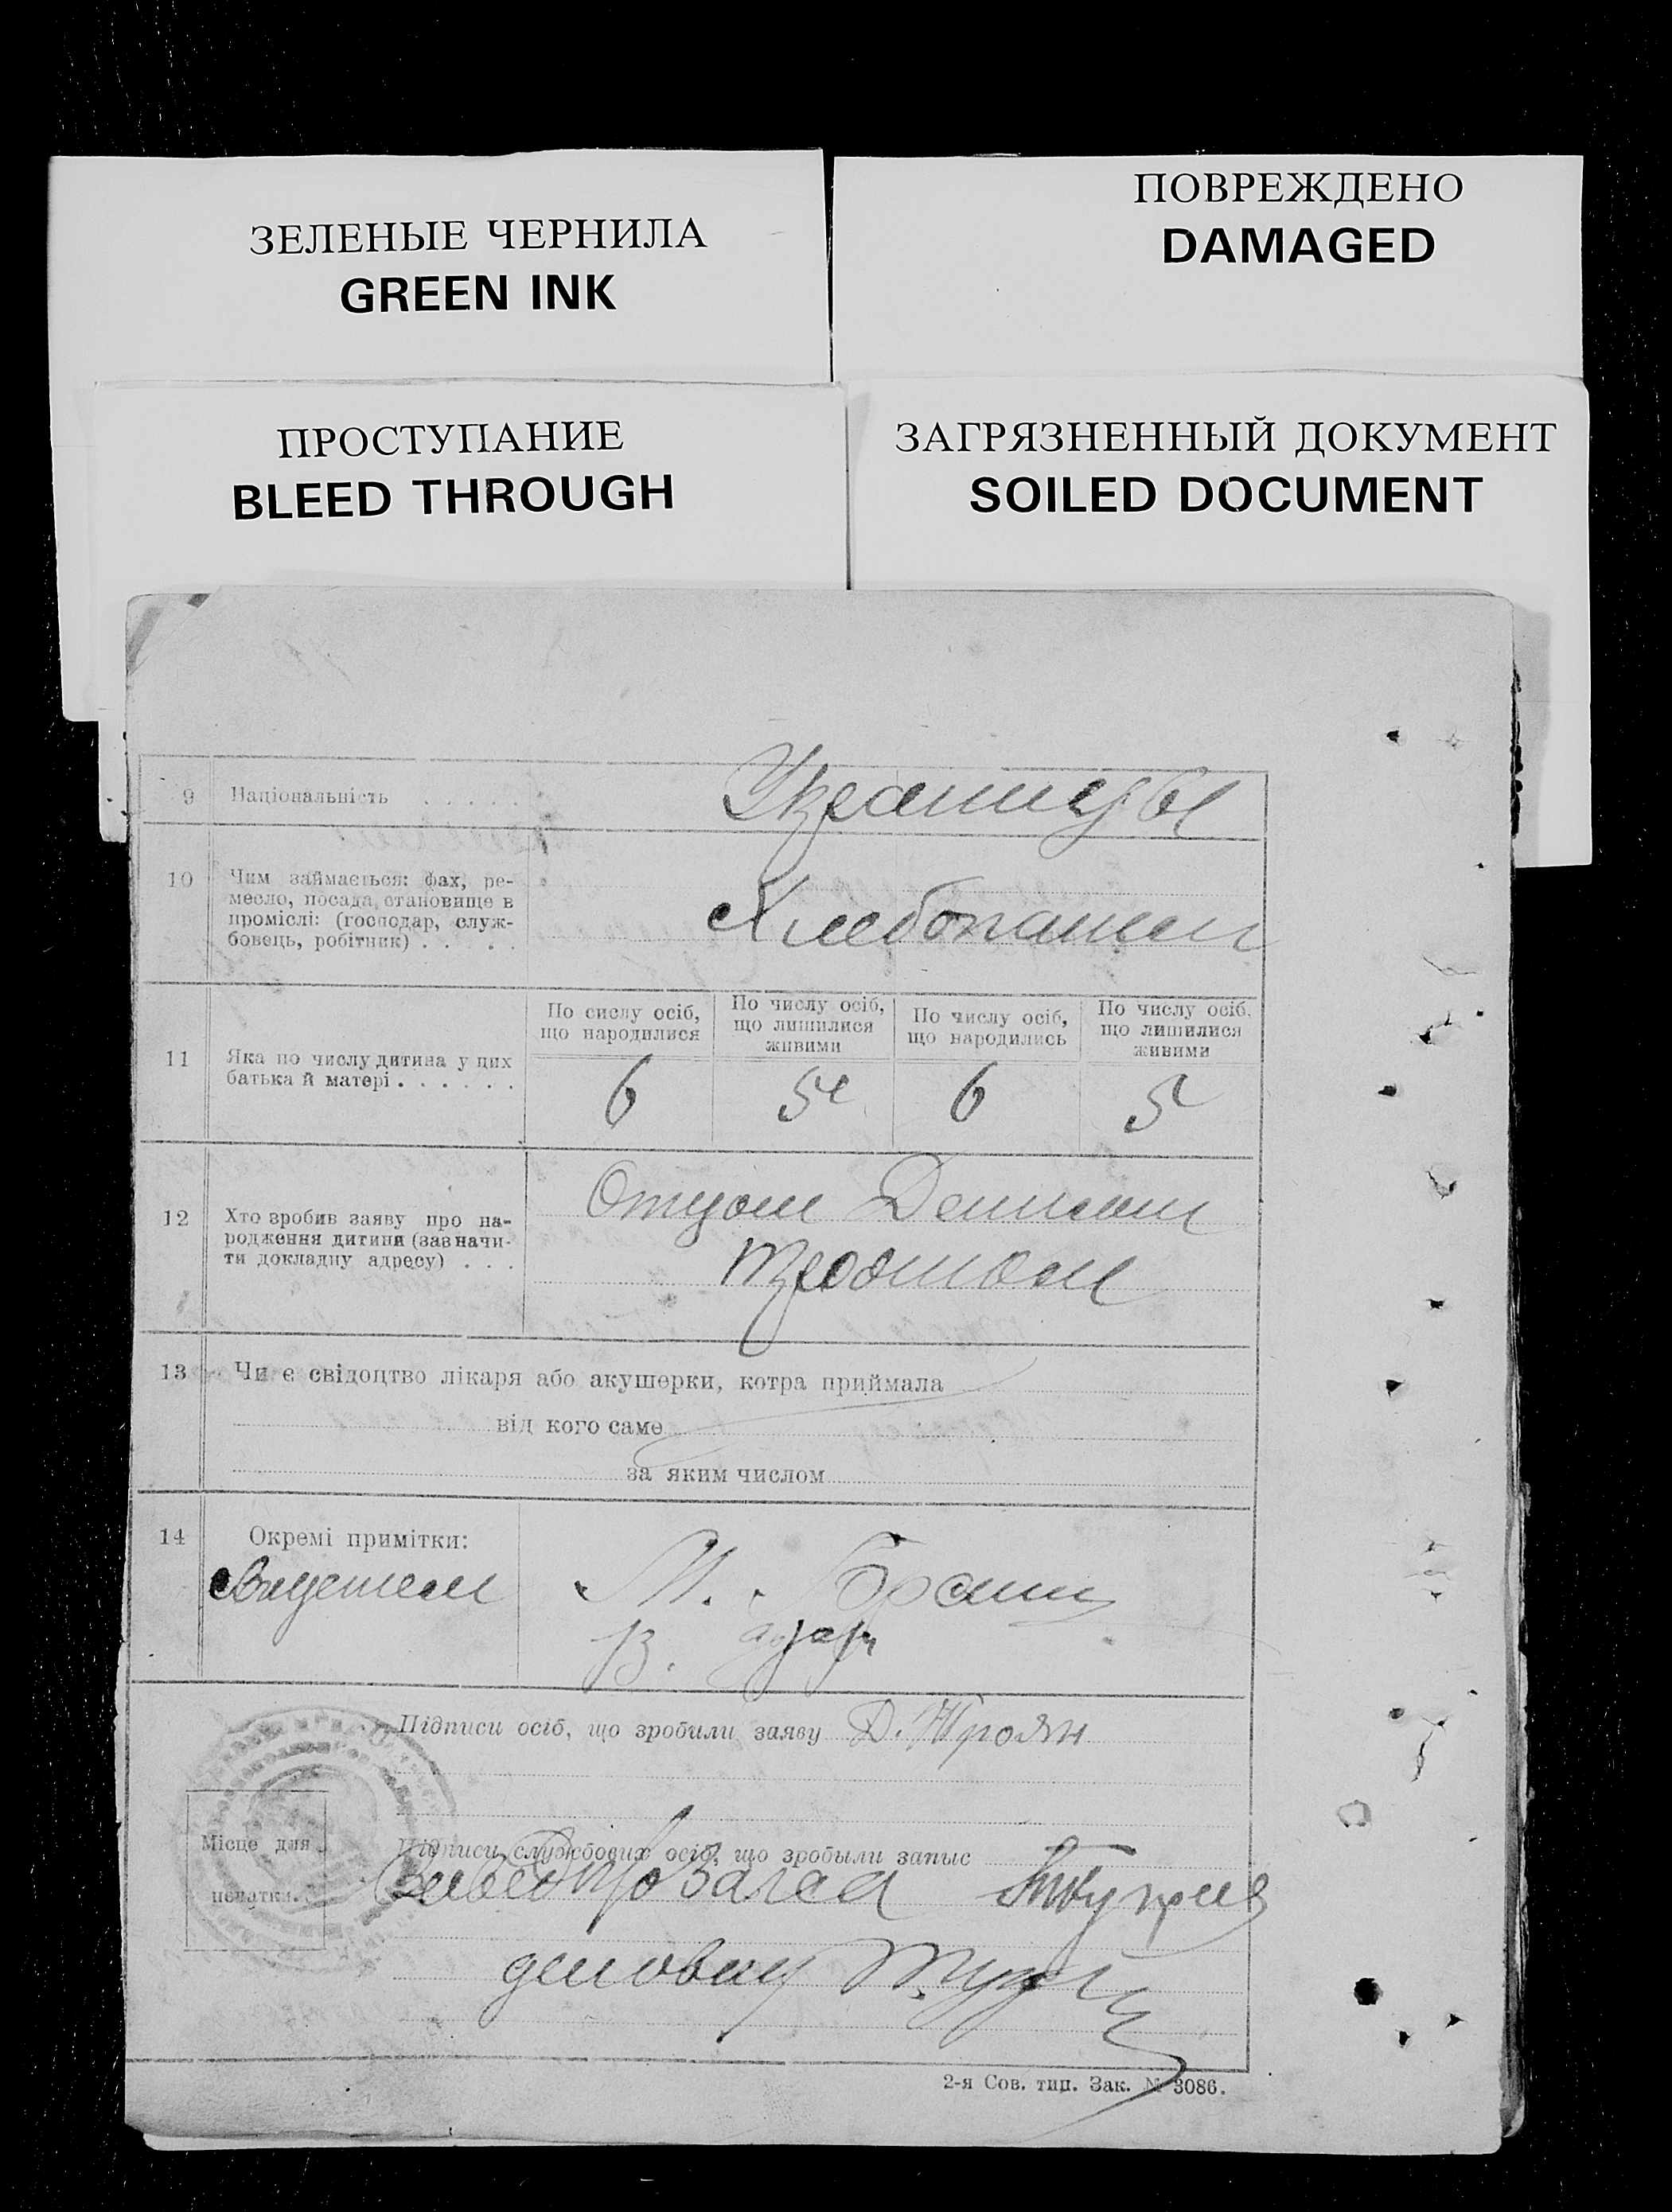 ЗЕЛЕНЫЕ ЧЕРНИЛА
GREEN INK
ПОВРЕЖДЕНО
DAMAGED
ПРОСТУПАНИЕ
BLEED THROUGH
ЗАГРЯЗНЕННЫЙ ДОКУМЕНТ
SOILED DOCUMENT
9 Національність . . . . . Украинцы
10 Чим займається: фах, ре-
месло, посада, становище в
проміслі: (господар, служ-
бовець, робітник) . . . . Хлебопашец
11 Яка по числу дитина у цих
батька й матері . . . . . .
По сислу осіб,
що народилися
По числу осіб,
що лишилися
живими
По числу осіб,
що народились
По числу осіб,
що лишилися
живими
6 5 6 5
12 Хто зробив заяву про на-
родження дитини (зазначи-
ти докладну адресу) . . .
Отцом
Трояном
13 Чи є свідоцтво лікаря або акушерки, котра приймала
від кого саме
за яким числом
14 Окремі примітки:
Свидетели М.
В.
Підписи осіб, що зробили заяву Д. Троян
Місце для
печатки.
Підписи службових осіб, що зробыли запыс
2-я Сов. тип. Зак. № 3086.